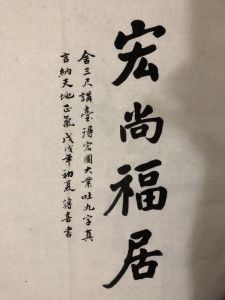 宏尚福居
舍三尺講臺得宏圖大業吐九字真
言納天地正氣戊戌年初夏傳喜書